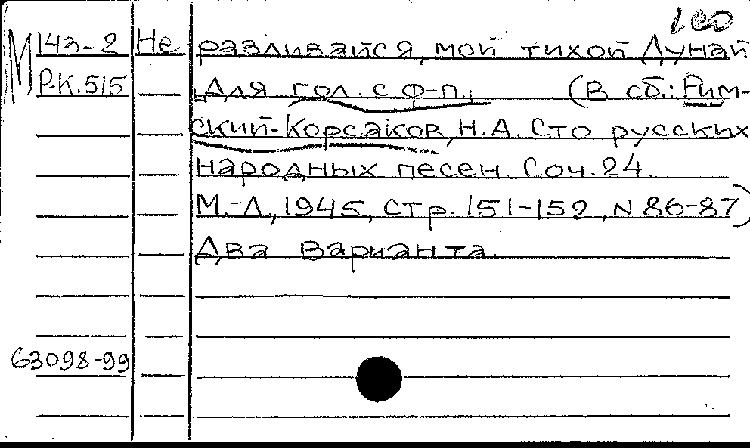 100
М 143-2 Не разливайся, мой тихой Дунай
Р-К.515 [Для гол. с ф-п.] (В сб.: Рим-
ский-Корсаков, Н.А. Сто русских
народных песен. Соч. 24.
М.-Л., 1945, стр. 151-152, N 86-87)
Два варианта.
63098-99